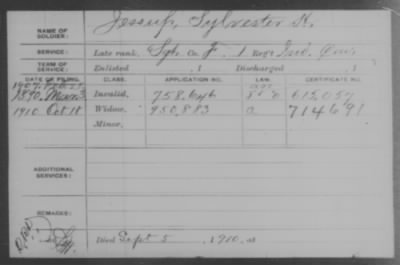 NAME OF SOLDIER: Jessup, Sylvester H.
SERVICE: Late rank, Sgt. Co. F, 1 Reg't Ind. Cav.
TERM OF SERVICE: Enlisted , 1 Discharged , 1
DATE OF FILING. CLASS. APPLICATION NO. LAW. CERTIFICATE NO.
1907
1890 Invalid, 758.646 612,057
1910 Oct. 18 Widow, 950,883 a 714691
Minor,
ADDITIONAL SERVICES:
REMARKS:
Died Sept 5, 1910, at